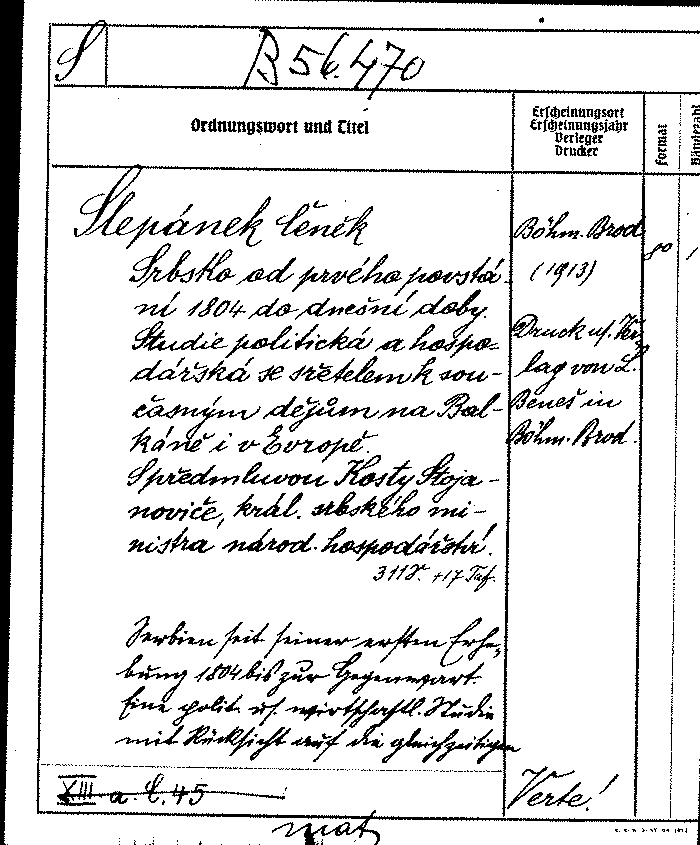 S
B 56.470
Ordnungswort und Titel
Erscheinungsort
Erscheinungsjahr
Verleger
Drucker
Format
Bändezahl
Štěpánek Čeněk
Srbsko od prvého povstá-
ní 1804 do dnešní doby.
Studie politická a hospo-
dářská se zřetelem k sou-
časným dějům na Bal-
káně i v Evropě.
S předmluvou Kosty Stoja-
noviće, král. srbského mi-
nistra národ. hospodářství.
311 S. +17 Taf.
Böhm. Brod
(1913)
Druck u. Ver-
lag von L.
Beneš in
Böhm. Brod.
8°
1
Serbien seit seiner ersten Erhe-
bung 1804 bis zur Gegenwart.
Eine polit. u. wirtschaftl. Studie
mit Rücksicht auf die gleichzeitigen
XIII a. C. 45
Verte!
mat